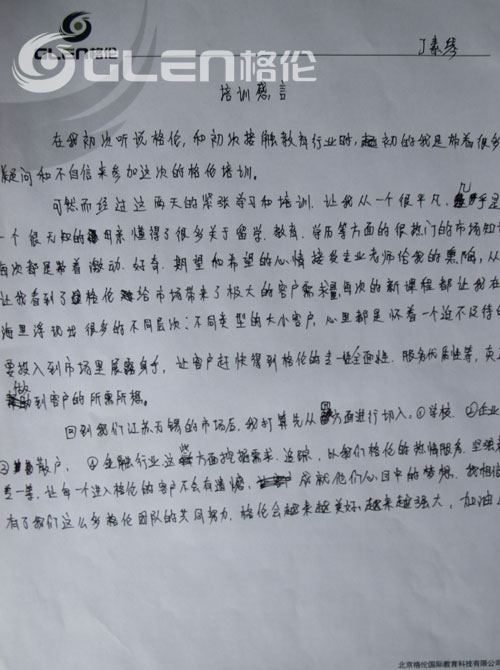 GLEN格伦
GLEN格伦
丁素琴
培训感言
在我初次听说格伦,和初次接触教育行业时,起初的我是带着很多
疑问和不自信来参加这次的格伦培训。
可然而经过这两天的紧张学习和培训,让我从一个很平凡,几乎是
一个很无知的 懂得了很多关于留学、教育、学历等方面的很热门的市场知识
每次都是带着激动、好奇、期望和希望的心情接受专业老师给我的熏陶,从
让我看到了格伦给市场带来了极大的客户需求量,每次的新课程都让我在
海里浮现出很多的不同层次;不同类型的大小客户,心里都是怀着一个迫不及待的
要投入到市场里展露身手,让客户赶快得到格伦的专一性全面性、服务优质性等,真正
做到客户的所需所想。
回到我们江苏无锡的市场后,我打算先从四方面进行切入。①学校、②企业
③散户、④金融行业,这些方面挖掘需求、追踪,以我们格伦的热情服务,坚强
专一等,让每一个进入格伦的客户不会有遗憾,成就他们心目中的梦想。我相信
有了我们这么多格伦团队的共同努力,格伦会越来越美好,越来越强大,加油
北京格伦国际教育科技有限公司